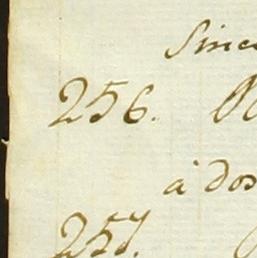 Since
256.
à Dos
257.